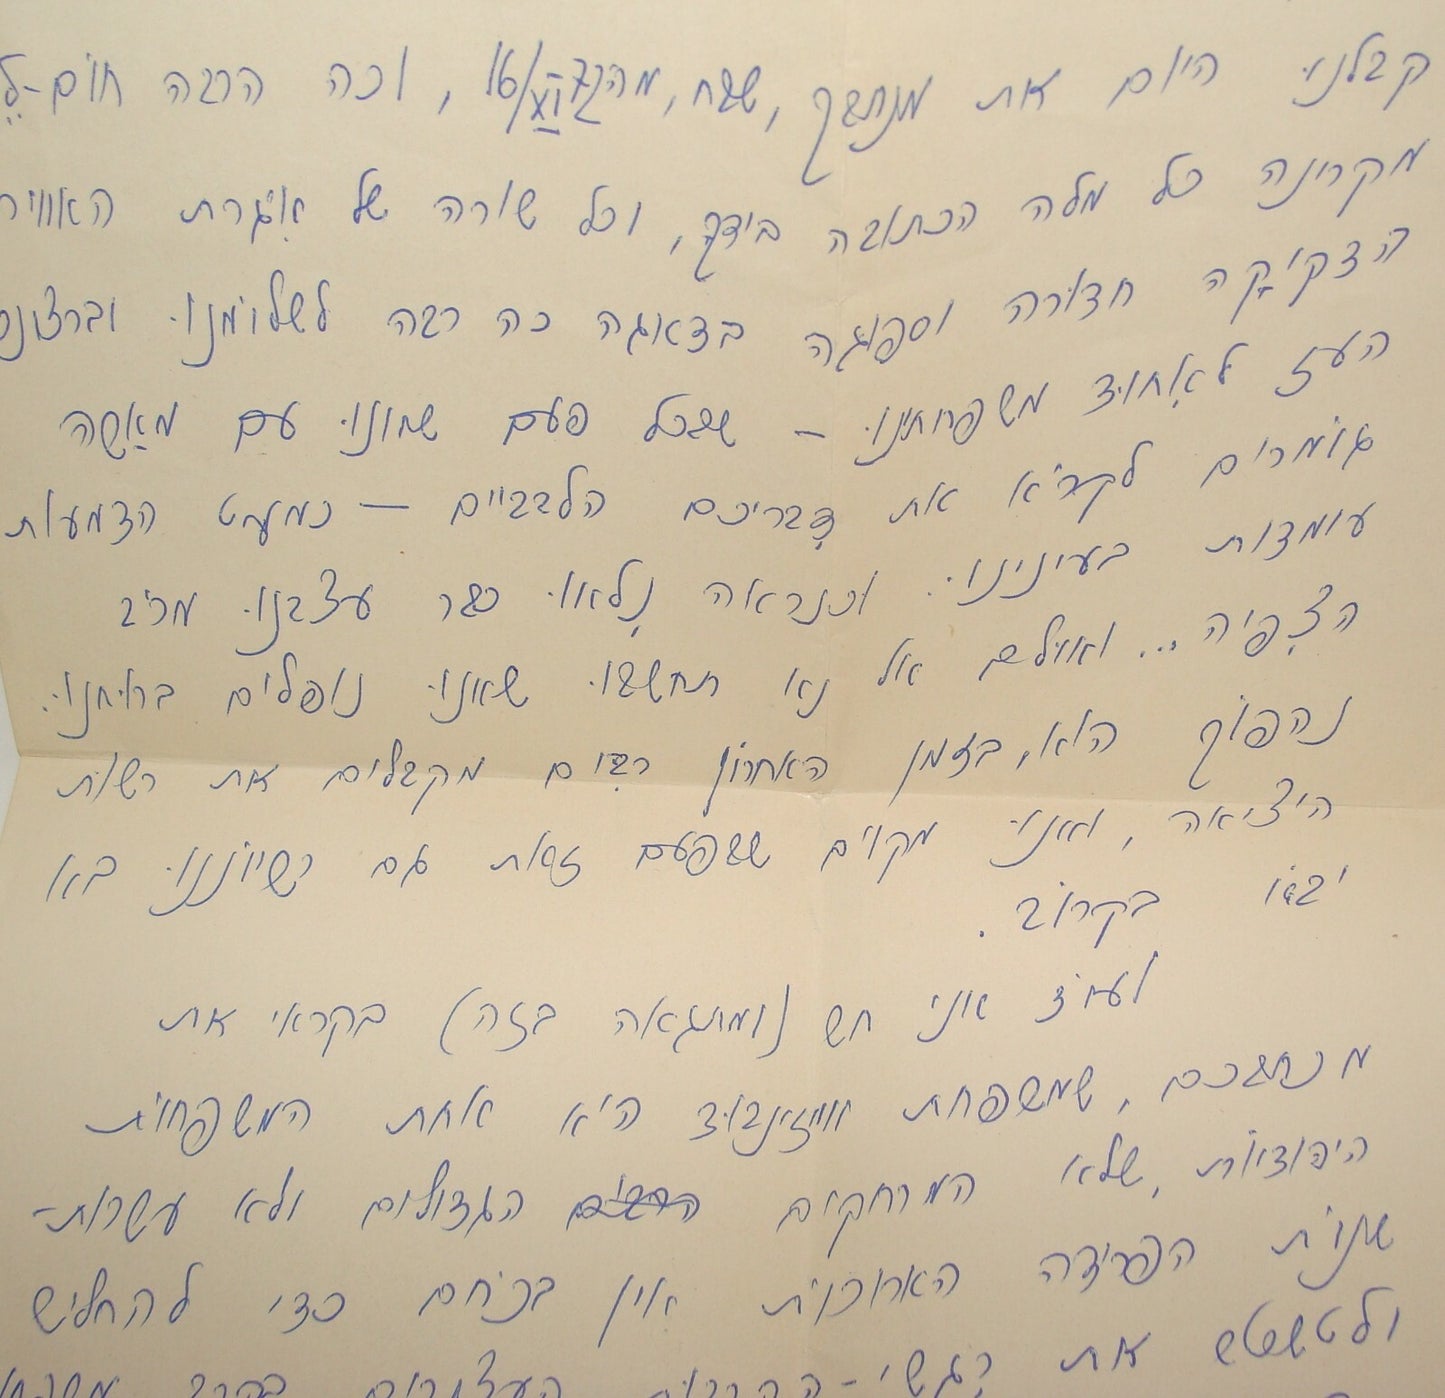 קבלנו היום את מכתבך, שפח, מה־16/, וכה הרבה חום-ל
מקרינה כל מלה הכתובה בידך, וכל שורה של אגרת האוויר
הצקיקה חדורה וספוגה בדאוגה כה רבה לשלומנו וברצונכ
העז לאחוד משפחותינו – שבכל פעם שאנו עם מאשה
גומרים לקרא את דבריכם הלבביים – כמעט הדמעות
עומדות בעינינו. וכנראה נלאו כבר עצבנו מרב
הצפיה... ואולם אל נא תחשבו שאנו נופלים ברוחנו.
נהפוך הוא, בזמן האחרון רבים מקבלים את רשות
היציאה, ואנו מקוים שבפעם זאת גם רשיוננו בא
יבוא בקרוב.
לעוד אני חש (ומתגאה בזה) בקראי את
מכתבכם, שמשפחת וויזינבוד היא אחת המשפחות
היהודיות, שלא המרחקים הרבים הגדולים ולא עשרות-
שנות הפרידה הארוכות אין בכחם כדי להחליש
ולטשטש את רגשי-